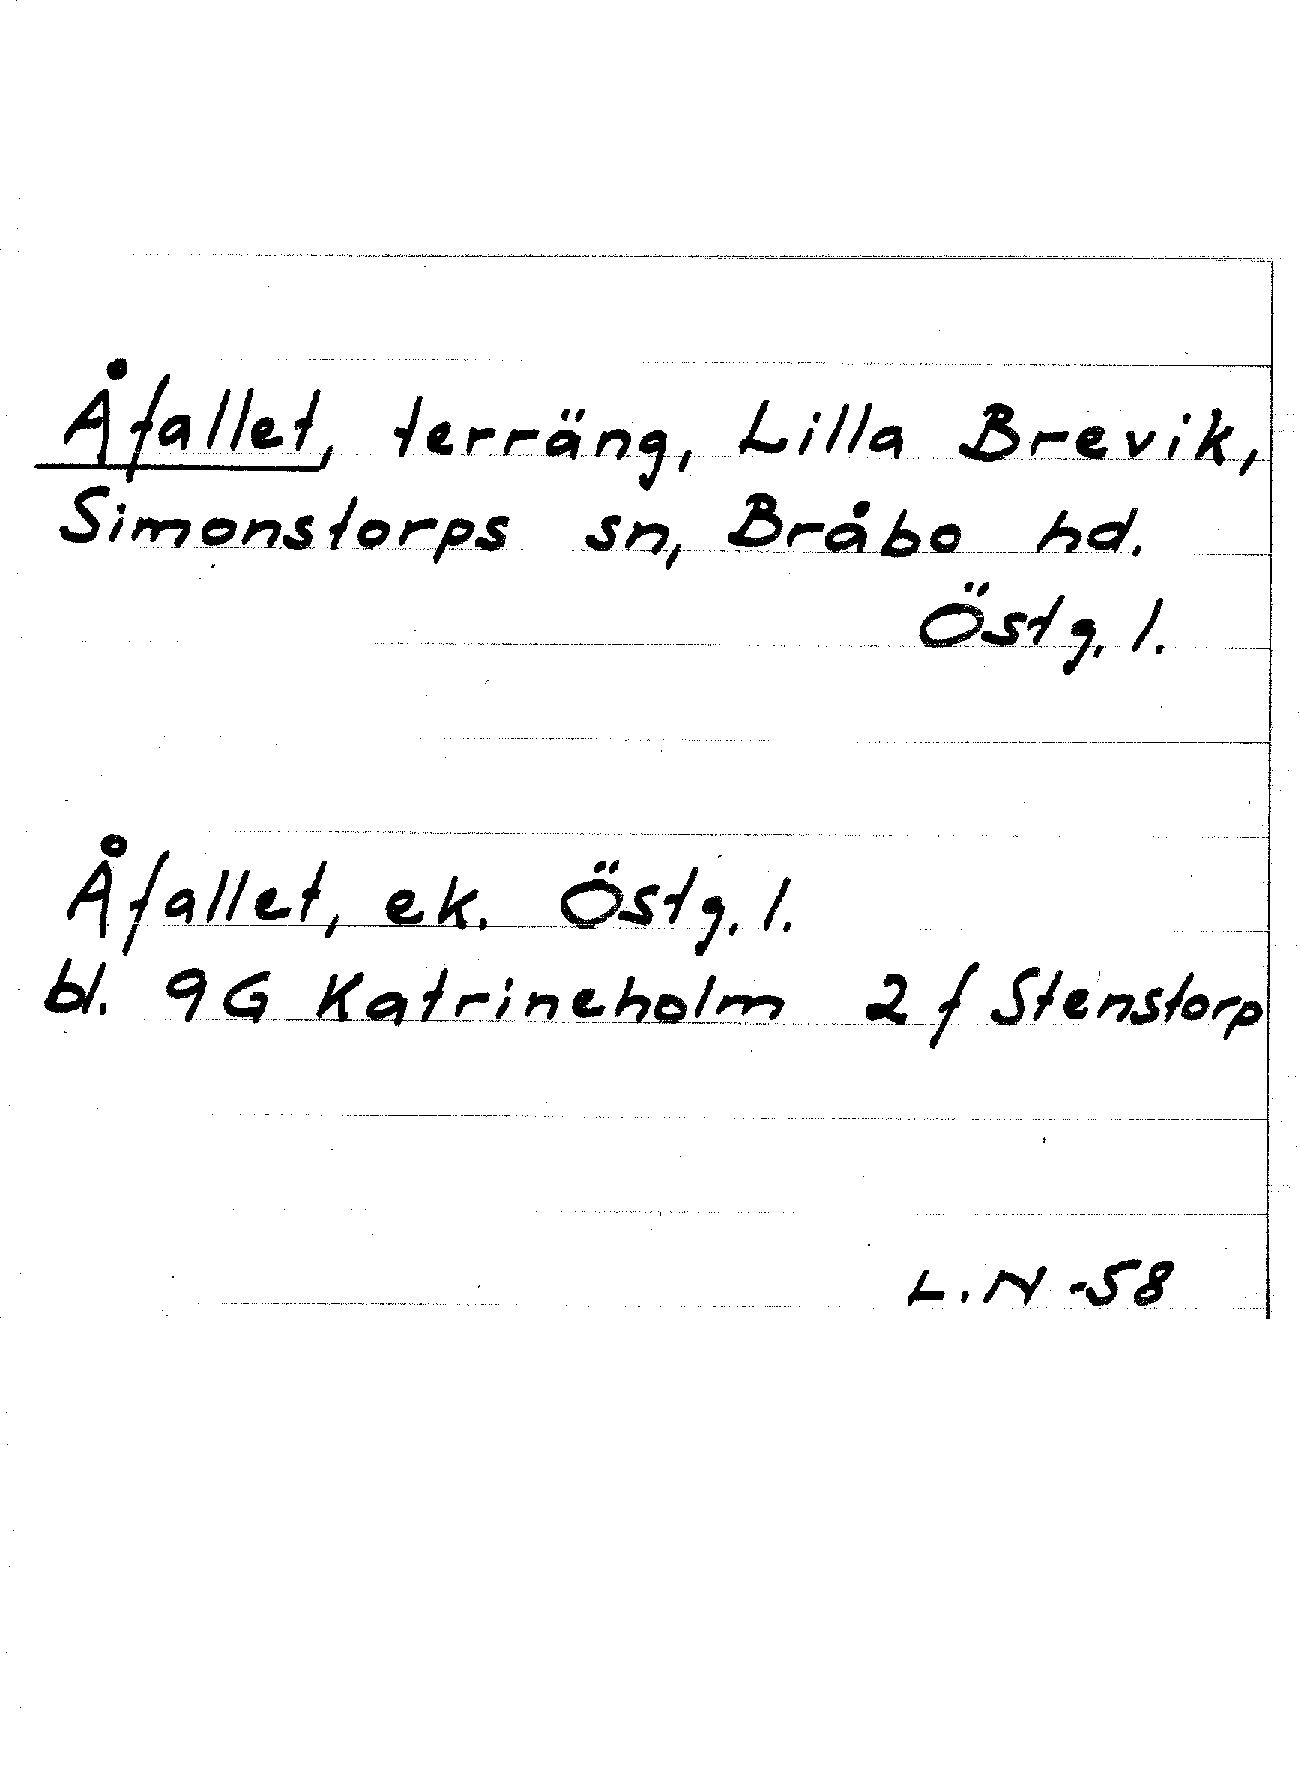 Åfallet, terräng, Lilla Brevik,
Simonstorps sn, Bråbo hd.
Östg. l.
Åfallet, ek. Östg. l.
bl. 9G Katrineholm 2f Stenstorp
L.N -58